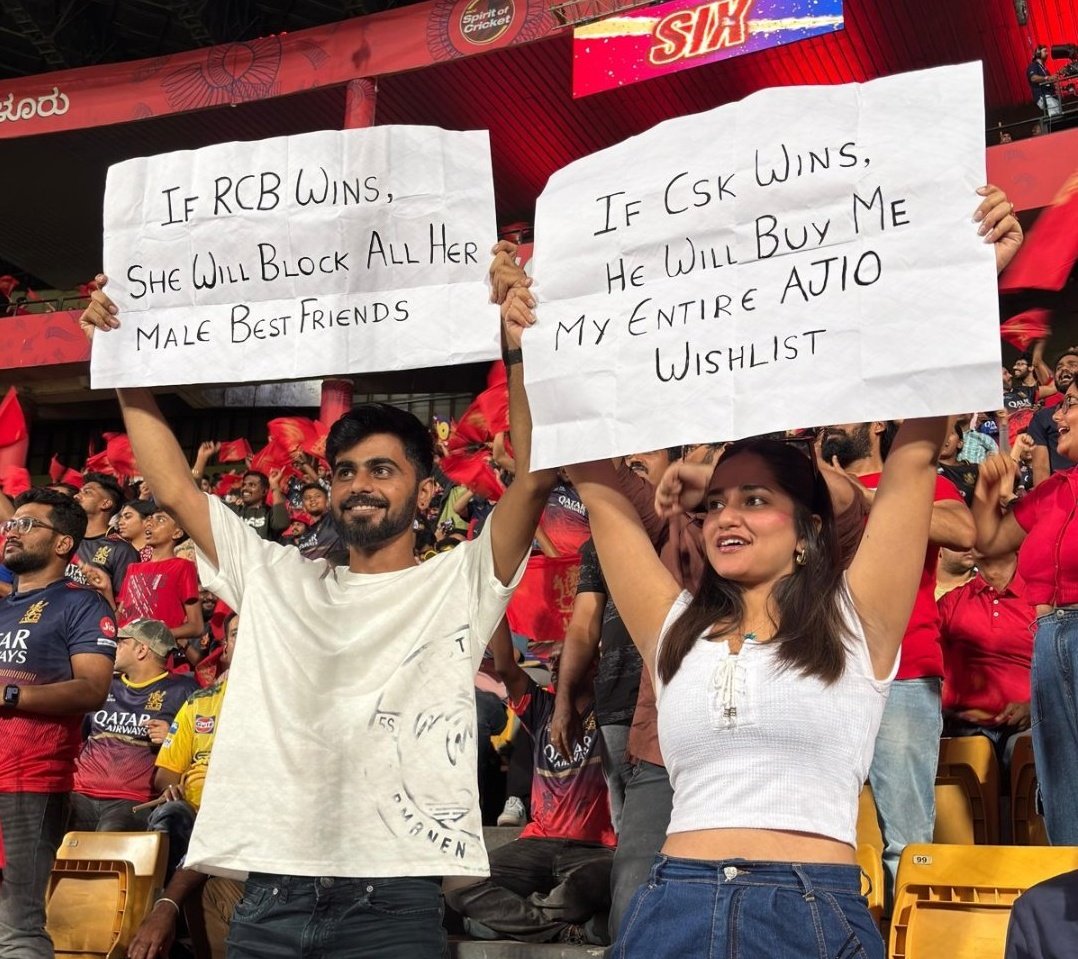 Spirit of
Cricket
SIX
ಳೂರು
IF RCB WINS,
SHE WILL BLOCK ALL HER
MALE BEST FRIENDS
IF CSK WINS,
HE WILL BUY ME
MY ENTIRE AJIO
WISHLIST
QATAR
AIRWAYS
Jio
99